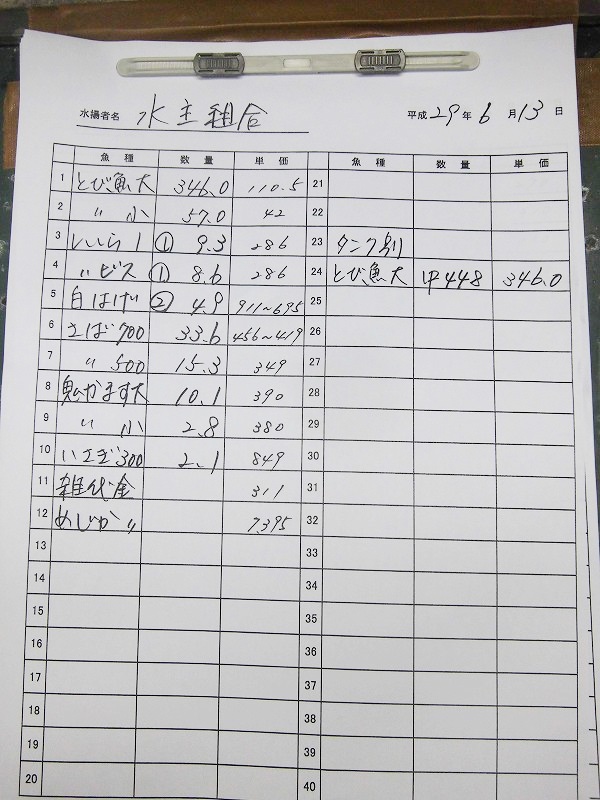 水揚者名 水主組合 平成29年6月13日
魚種 数量 単価 魚種 数量 単価
1 とび魚大 346.0 110.5 21
2 〃 小 57.0 42 22
3 しいら 1 ① 9.3 286 23 タンク別
4 〃 ビス ① 8.6 286 24 とび魚大 中448 346.0
5 白はげ ② 4.9 911~695 25
6 さば700 33.6 456~419 26
7 〃 500 15.3 349 27
8 かます大 10.1 390 28
9 〃 小 2.8 380 29
10 いさぎ300 2.1 849 30
11 雑代金 311 31
12 めじか〃 7395 32
13 33
14 34
15 35
16 36
17 37
18 38
19 39
20 40